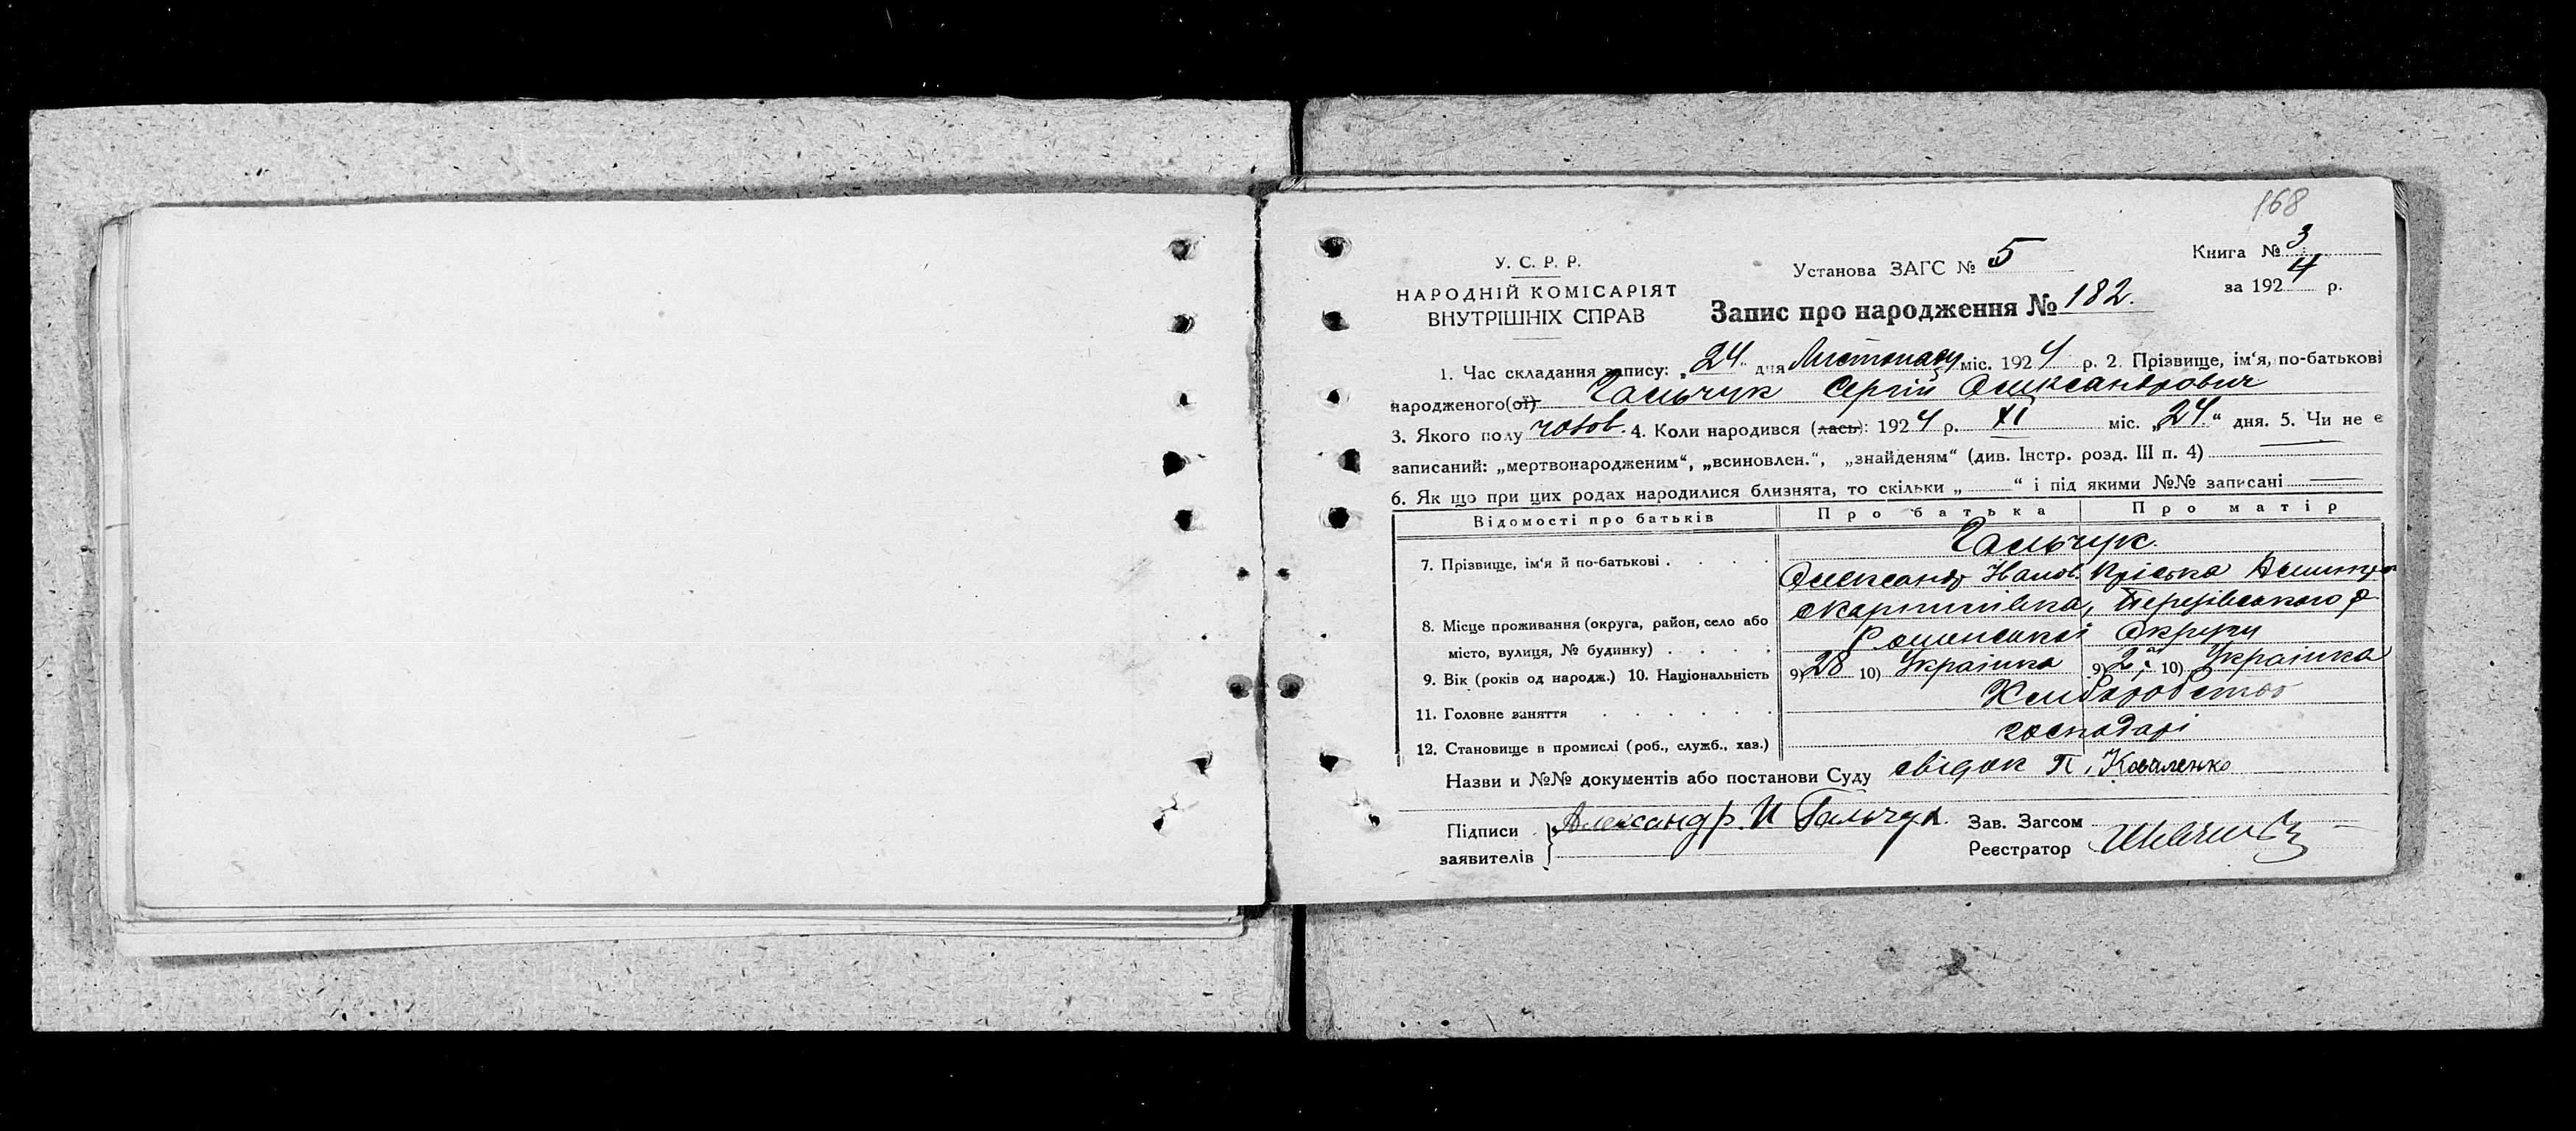 168
У. С. Р. Р.
НАРОДНІЙ КОМІСАРІЯТ
ВНУТРІШНІХ СПРАВ
Установа ЗАГС № 5
Книга № 3
за 1924 р.
Запис про народження № 182.
1. Час складання запису: „24“ дня Листопаду міс. 1924 р. 2. Прізвище, ім'я, по-батькові
народженого(ої) Гальчук Сергій Олександрович
3. Якого полу чолов. 4. Коли народився (лась): 1924 р. XI міс. „24.“ дня. 5. Чи не є
записаний: „мертвонародженим“, „всиновлен.“, „знайденям“ (див. Інстр. розд. III п. 4)
6. Як що при цих родах народилися близнята, то скільки „ — “ і під якими №№ записані —
Відомості про батьків Про батька Про матір
Гальчук.
7. Прізвище, ім'я й по-батькові . . . .
Олександр Пріська
8. Місце проживання (округа, район, село або
місто, вулиця, № будинку) . . . .
Роменської Округи
9. Вік (років од народж.) 10. Національність 9) 28 10) Українка 9) 10) Українка
11. Головне заняття . . . . . . Хліборобство
12. Становище в промислі (роб., служб., хаз.) господарі
Назви и №№ документів або постанови Суду свідок П. Коваленко
Підписи
заявителів
Александр. И Гальчук.
Зав. Загсом
Реєстратор